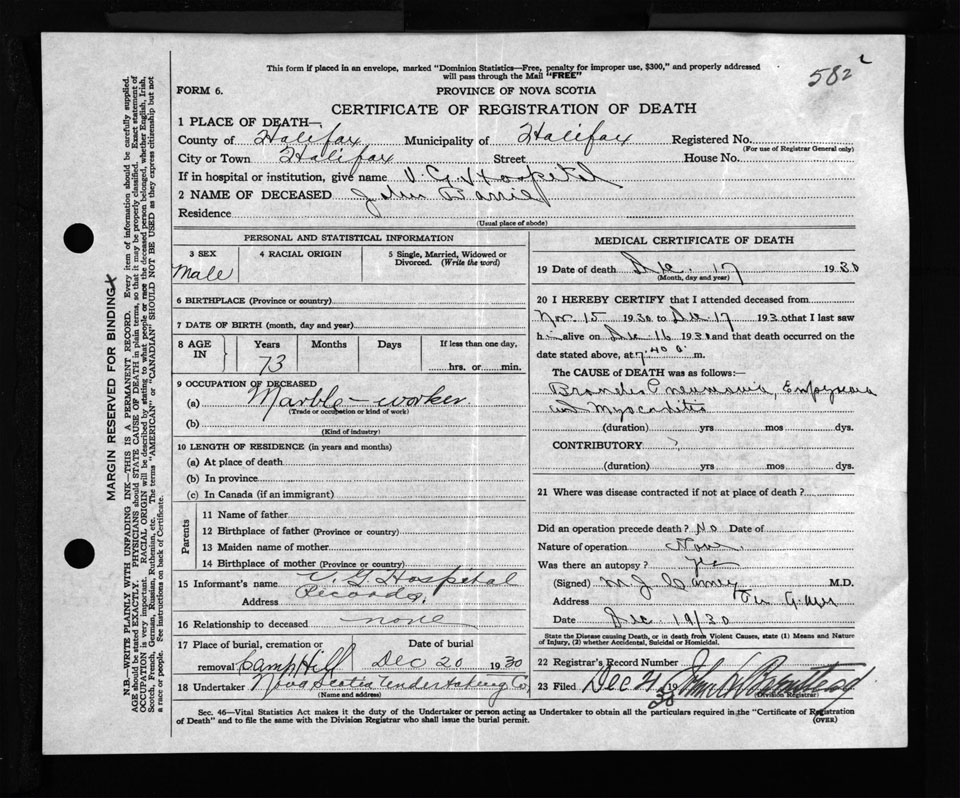 582
This form if placed in an envelope, marked "Dominion Statistics—Free, penalty for improper use, $300," and properly addressed
will pass through the Mail "FREE"
FORM 6.
PROVINCE OF NOVA SCOTIA
CERTIFICATE OF REGISTRATION OF DEATH
1 PLACE OF DEATH—
County of Halifax Municipality of Halifax Registered No.
(For use of Registrar General only)
City or Town Halifax Street House No.
If in hospital or institution, give name V. G. Hospital
2 NAME OF DECEASED John Barrie
Residence
(Usual place of abode)
PERSONAL AND STATISTICAL INFORMATION
3 SEX
Male
4 RACIAL ORIGIN
5 Single, Married, Widowed or
Divorced. (Write the word)
6 BIRTHPLACE (Province or country)
7 DATE OF BIRTH (month, day and year)
8 AGE IN
Years Months Days If less than one day,
73 hrs. or min.
9 OCCUPATION OF DECEASED
(a) Marble-worker
(Trade or occupation or kind of work)
(b)
(Kind of industry)
10 LENGTH OF RESIDENCE (in years and months)
(a) At place of death
(b) In province
(c) In Canada (if an immigrant)
Parents
11 Name of father
12 Birthplace of father (Province or country)
13 Maiden name of mother
14 Birthplace of mother (Province or country)
15 Informant's name V. G. Hospital
Address Records.
16 Relationship to deceased none
17 Place of burial, cremation or Date of burial
removal Camp Hill Dec 20 1930
18 Undertaker Nova Scotia Undertaking Co
(Name and address)
MEDICAL CERTIFICATE OF DEATH
19 Date of death Dec. 17 1930
(Month, day and year)
20 I HEREBY CERTIFY that I attended deceased from
Nov. 15 1930 to Dec. 17 1930 that I last saw
h alive on Dec 16 1930 and that death occurred on the
date stated above, at 7.40 m.
The CAUSE of DEATH was as follows:—
Broncho Pneumonia, Empyema
Myocarditis
(duration) yrs mos dys.
CONTRIBUTORY ?
(duration) yrs mos dys.
21 Where was disease contracted if not at place of death?
Did an operation precede death? No Date of
Nature of operation None
Was there an autopsy? Yes
(Signed) M. J. Carney M.D.
Address
Date Dec. 19/30
State the Disease causing Death, or in death from Violent Causes, state (1) Means and Nature
of Injury, (2) whether Accidental, Suicidal or Homicidal.
22 Registrar's Record Number
23 Filed Dec 21 1930 John
Division Registrar
Sec. 46—Vital Statistics Act makes it the duty of the Undertaker or person acting as Undertaker to obtain all the particulars required in the "Certificate of Registration
of Death" and to file the same with the Division Registrar who shall issue the burial permit.
(OVER)
MARGIN RESERVED FOR BINDING
N.B.—WRITE PLAINLY WITH UNFADING INK—THIS IS A PERMANENT RECORD. Every item of information should be carefully supplied.
AGE should be stated EXACTLY. PHYSICIANS should STATE CAUSE OF DEATH in plain terms, so that it may be properly classified. Exact statement of
OCCUPATION is very important. RACIAL ORIGIN will be described by stating to what people or race the deceased person belonged, whether English, Irish,
Scotch, French, German, Russian, Ruthenian, etc. The terms "AMERICAN" or "CANADIAN" SHOULD NOT BE USED as they express citizenship but not
a race or people. See instructions on back of Certificate.